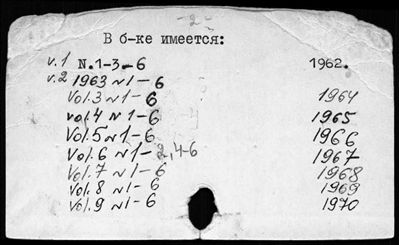 -2-
В б-ке имеется:
v.1 N.1-3-6 1962.
v.2 1963 N1-6
Vol.3 N1-6 1964
vol.4 N1-6 1965
Vol.5 N1-6 1966
Vol.6 N1-2,4-6 1967
Vol.7 N1-6 1968
Vol.8 N1-6 1969
Vol.9 N1-6 1970